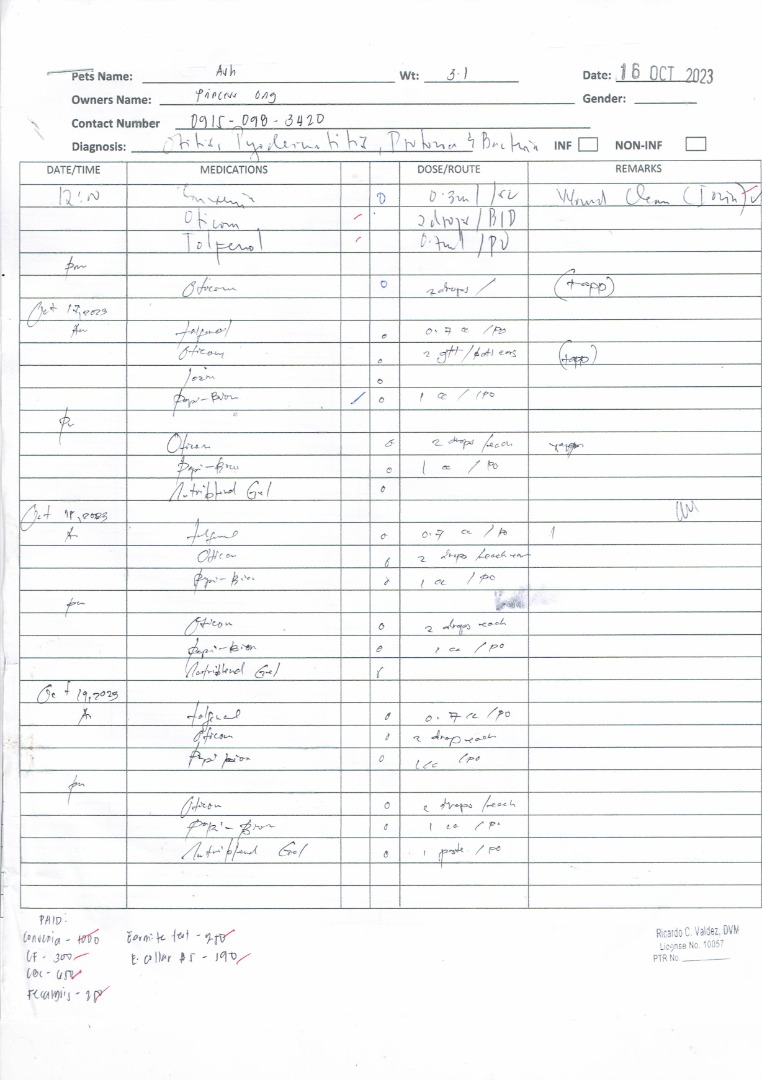 Pets Name: Ash Wt: 3.1 Date: 16 OCT 2023
Owners Name: Princess Ong Gender:
Contact Number 0915-098-3420
Diagnosis: Otitis, Pyodermatitis, Protozoa & Bacteria INF NON-INF
DATE/TIME MEDICATIONS DOSE/ROUTE REMARKS
12:00 0.3ml /SC Wound Clean (Iozin)
Oticom 2 drops/BID
Tolfenol 0.7ml /PO
pm
Oticom 2 drops/ (+app)
Oct 17, 2023
Am Tolfenol 0.7 cc /PO
Oticom 2 gtt/both ears (+app)
Iozin
Papi-Bion 1 cc /PO
pm
Oticom 2 drops/each
Papi-Bion 1 cc /PO
Nutriblend Gel
Oct 18, 2023
Am Tolfenol 0.7 cc /PO
Oticom 2 drops/each ear
Papi-Bion 1 cc /PO
pm
Oticom 2 drops each
Papi-Bion 1 cc /PO
Nutriblend Gel
Oct 19, 2023
Am Tolfenol 0.7 cc /PO
Oticom 2 drop each
Papi Bion 1 cc /PO
pm
Oticom 2 drops/each
Papi-Bion 1 cc /PO
Nutriblend Gel 1 paste /PO
PAID:
Convenia - 1000 Earmite test - 250
CF - 300 E. collar #5 - 390
CBC - 650
Fecalysis -
Ricardo C. Valdez, DVM
License No. 10057
PTR No.